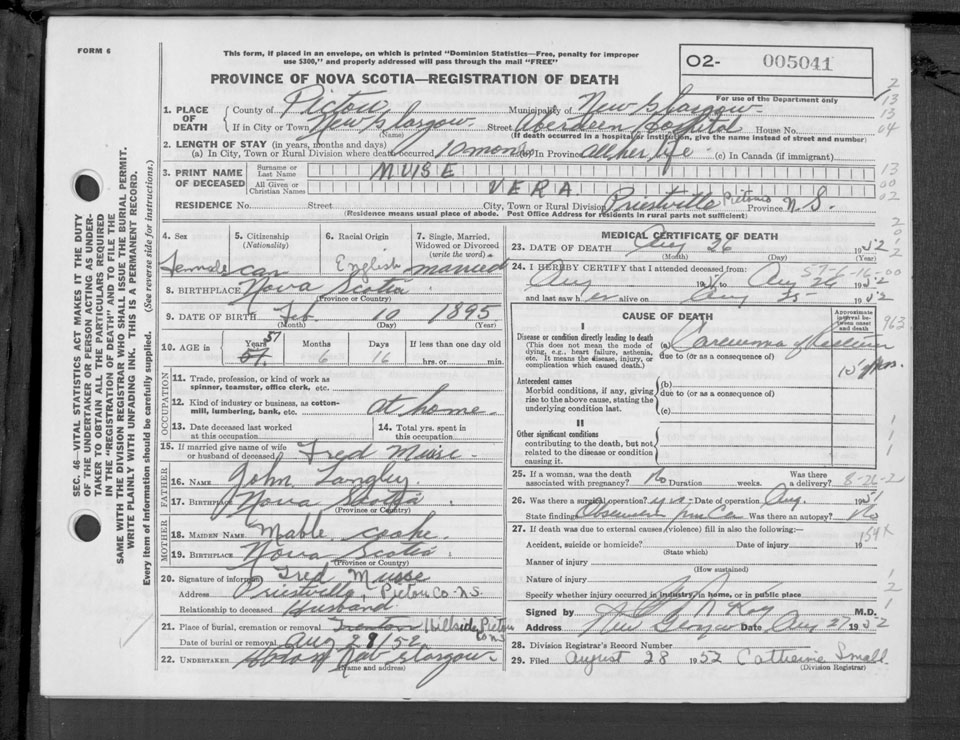 FORM 6
This form, if placed in an envelope, on which is printed "Dominion Statistics—Free, penalty for improper
use $300," and properly addressed will pass through the mail "FREE"
PROVINCE OF NOVA SCOTIA—REGISTRATION OF DEATH
02- 005041
For use of the Department only
1. PLACE OF DEATH County of Pictou Municipality of New Glasgow
If in City or Town New Glasgow Street Aberdeen Hospital House No.
(Name) (If death occurred in a hospital or institution, give the name instead of street and number)
2. LENGTH OF STAY (in years, months and days)
(a) In City, Town or Rural Division where death occurred 10 months (b) In Province All her life (c) In Canada (if immigrant)
3. PRINT NAME OF DECEASED Surname or Last Name MUISE
All Given or Christian Names VERA
RESIDENCE No. Street City, Town or Rural Division Priestville Pictou Co Province N.S.
(Residence means usual place of abode. Post Office Address for residents in rural parts not sufficient)
4. Sex Female
5. Citizenship (Nationality) Can
6. Racial Origin English
7. Single, Married, Widowed or Divorced (write the word) married
8. BIRTHPLACE Nova Scotia
(Province or Country)
9. DATE OF BIRTH Feb 10 1895
(Month) (Day) (Year)
10. AGE in Years 57 Months 6 Days 16 If less than one day old hrs. or min.
OCCUPATION
11. Trade, profession, or kind of work as spinner, teamster, office clerk, etc.
12. Kind of industry or business, as cotton-mill, lumbering, bank, etc. at home
13. Date deceased last worked at this occupation
14. Total yrs. spent in this occupation
15. If married give name of wife or husband of deceased Fred Muise
FATHER
16. NAME John Langley
17. BIRTHPLACE Nova Scotia
(Province or Country)
MOTHER
18. MAIDEN NAME Mable Cooke
19. BIRTHPLACE Nova Scotia
(Province or Country)
20. Signature of informant Fred Muise
Address Priestville, Pictou Co. N.S.
Relationship to deceased Husband
21. Place of burial, cremation or removal Trenton Hillside, Pictou Co NS
Date of burial or removal Aug 29/52
22. UNDERTAKER New Glasgow
(Name and address)
MEDICAL CERTIFICATE OF DEATH
23. DATE OF DEATH Aug 26 1952
(Month) (Day) (Year)
24. I HEREBY CERTIFY that I attended deceased from:
Aug 19 to Aug 26 1952
and last saw her alive on Aug 25 1952
CAUSE OF DEATH
Approximate interval between onset and death
I
Disease or condition directly leading to death
(This does not mean the mode of dying, e.g., heart failure, asthenia, etc. It means the disease, injury, or complication which caused death.)
(a) Carcinoma of
due to (or as a consequence of)
Antecedent causes
Morbid conditions, if any, giving rise to the above cause, stating the underlying condition last.
(b)
due to (or as a consequence of)
(c)
II
Other significant conditions
contributing to the death, but not related to the disease or condition causing it.
25. If a woman, was the death associated with pregnancy? No Duration weeks. Was there a delivery?
8-26-2
26. Was there a surgical operation? yes Date of operation Aug. 1951
State findings Was there an autopsy? No
27. If death was due to external causes (violence) fill in also the following:—
Accident, suicide or homicide? Date of injury 19
(State which)
Manner of injury
(How sustained)
Nature of injury
Specify whether injury occurred in industry, in home, or in public place
Signed by M.D.
Address New Glasgow Date Aug 27 1952
28. Division Registrar's Record Number
29. Filed August 28 1952 Catherine Small
(Division Registrar)
SEC. 46—VITAL STATISTICS ACT MAKES IT THE DUTY
OF THE UNDERTAKER OR PERSON ACTING AS UNDER-
TAKER TO OBTAIN ALL THE PARTICULARS REQUIRED
IN THE "REGISTRATION OF DEATH" AND TO FILE THE
SAME WITH THE DIVISION REGISTRAR WHO SHALL ISSUE THE BURIAL PERMIT.
WRITE PLAINLY WITH UNFADING INK. THIS IS A PERMANENT RECORD.
Every item of information should be carefully supplied. (See reverse side for instructions.)